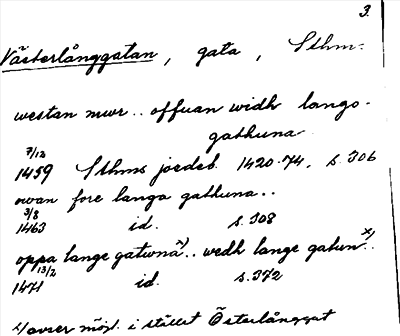 3.
Västerlånggatan, gata, Sthm.
westan mwr.. offuan widh lango-
gathuna
7/12
1459 Sthms jordeb. 1420-74, s. 306
owan fore langa gathuna..
3/8
1463 id. s. 308
oppa lange gatwna x).. wedh lange gatun x)..
13/2
1471 id. s. 372
x) avser möjl. i stället Österlånggat